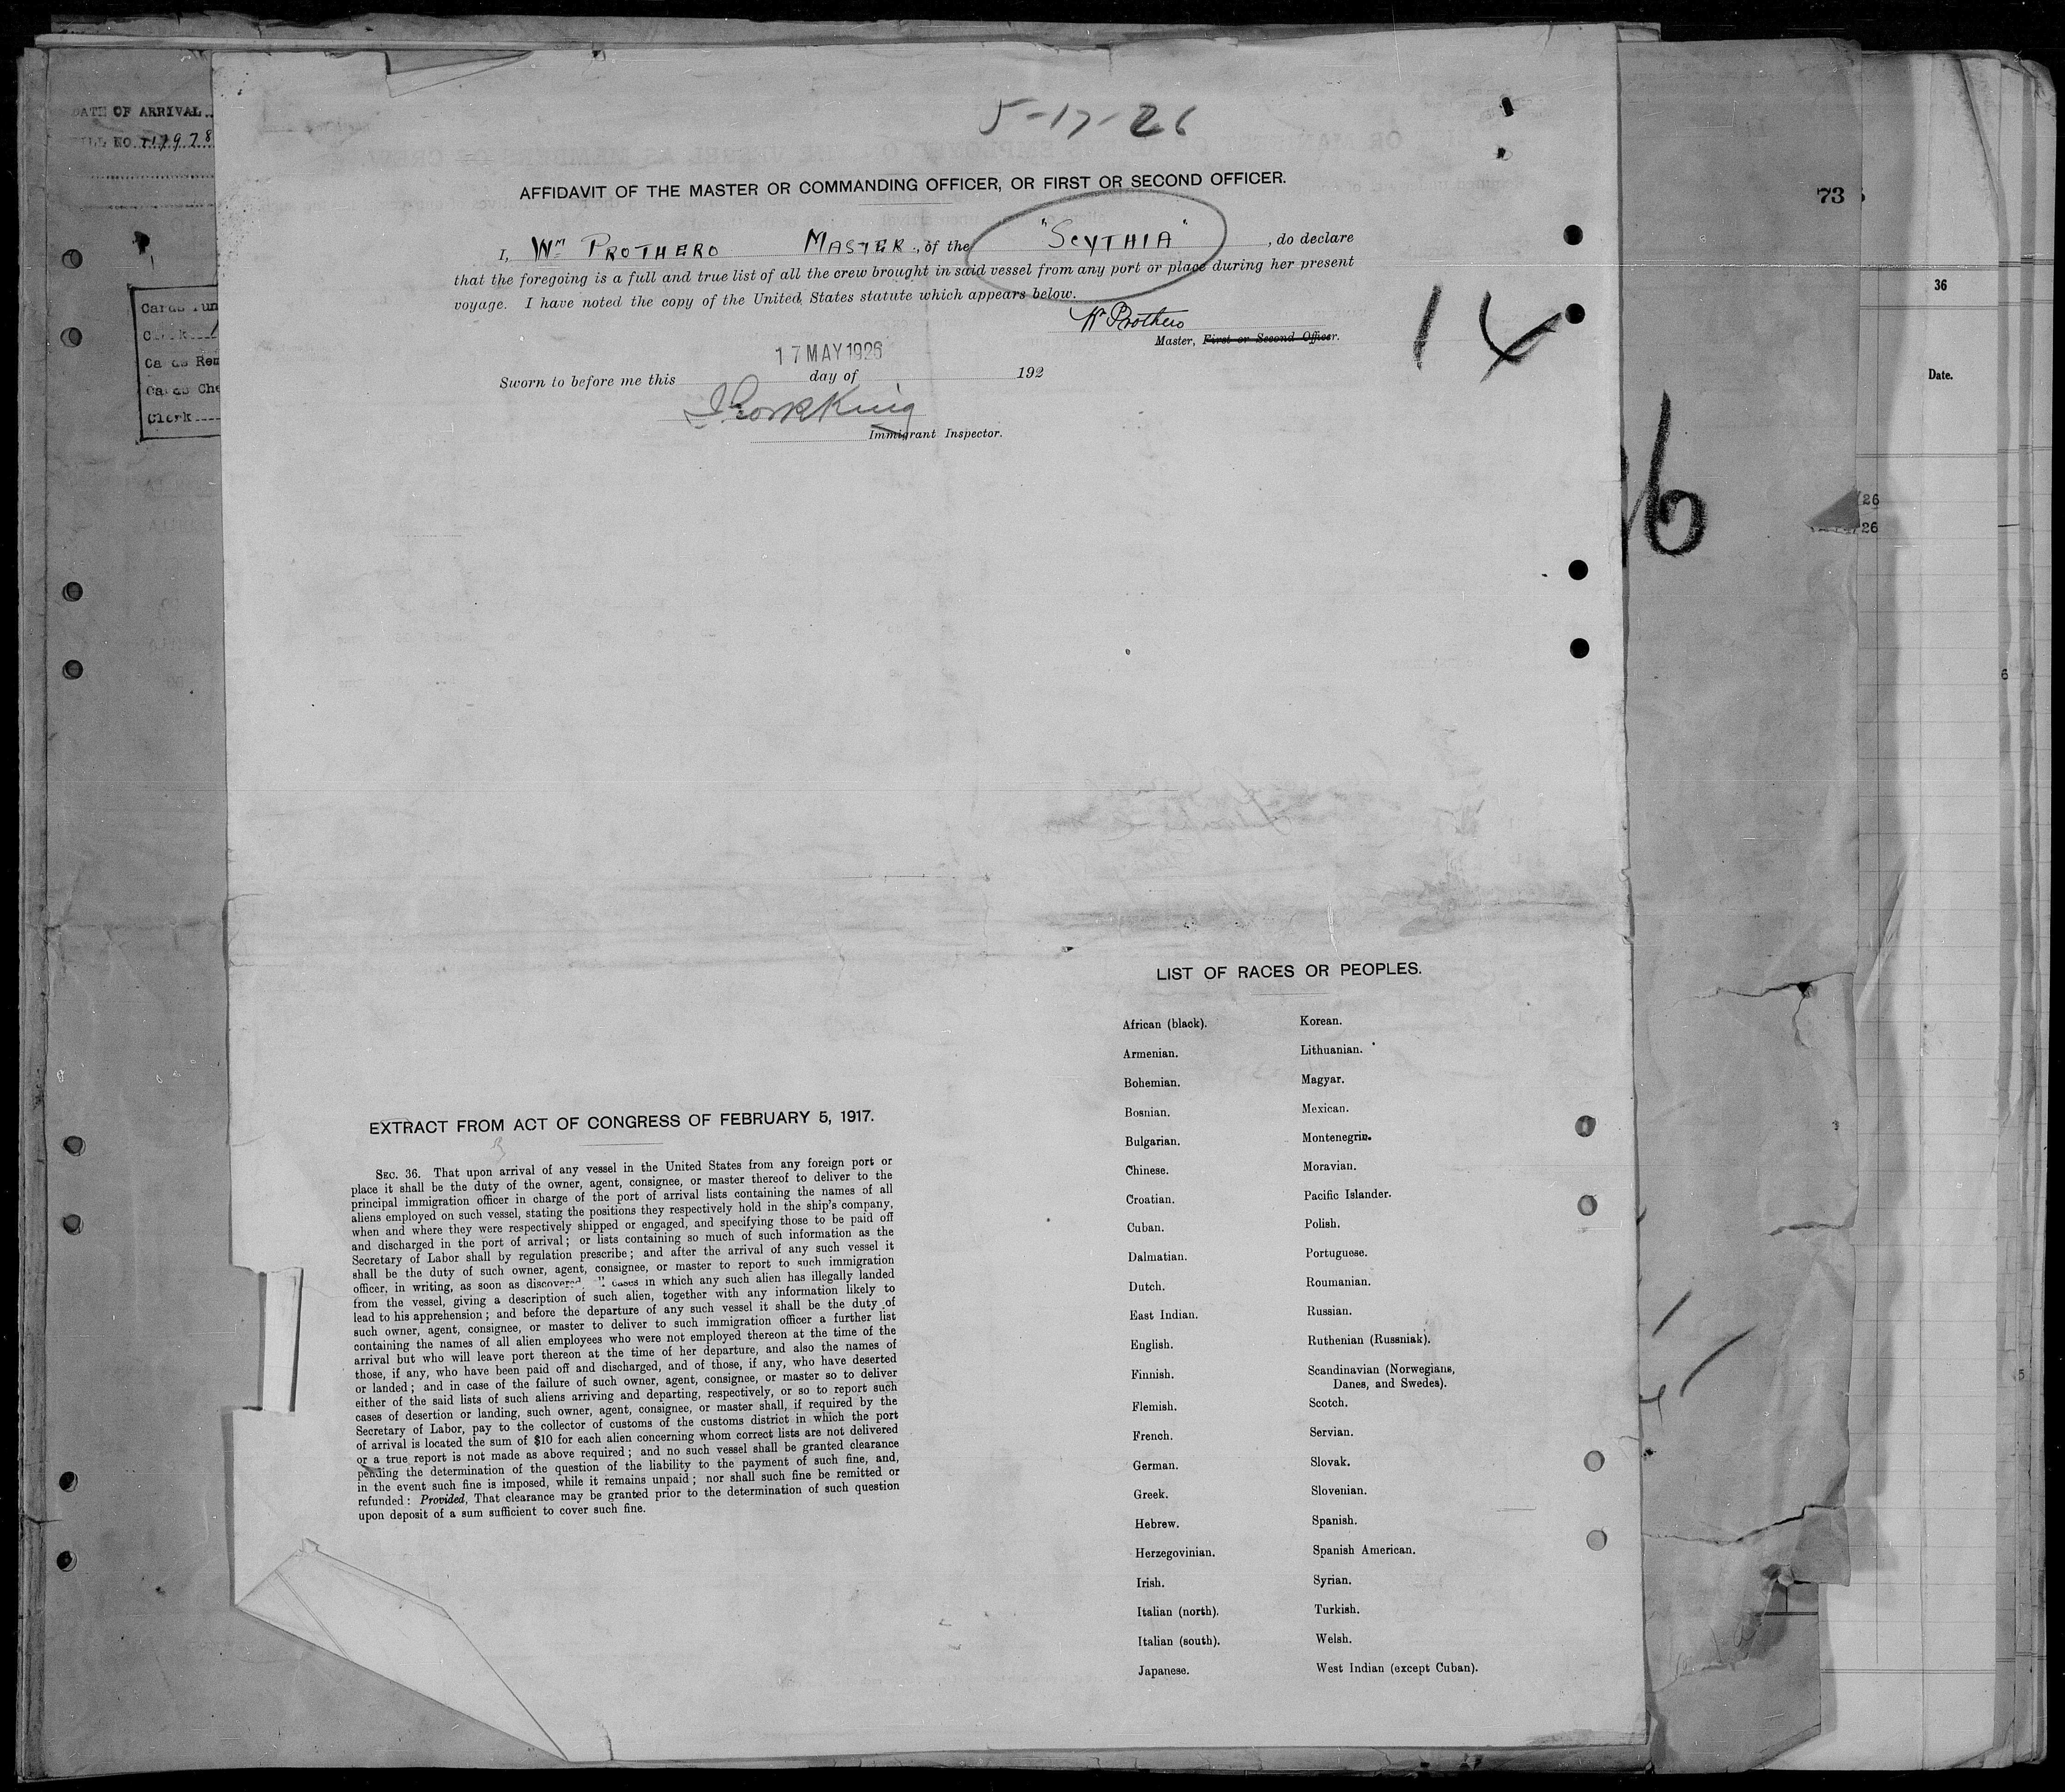 5-17-26
AFFIDAVIT OF THE MASTER OR COMMANDING OFFICER, OR FIRST OR SECOND OFFICER.
I, Wm PROTHERO MASTER, of the "SCYTHIA", do declare
that the foregoing is a full and true list of all the crew brought in said vessel from any port or place during her present
voyage. I have noted the copy of the United States statute which appears below.
Wm Prothero
Master, First or Second Officer.
17 MAY 1926
Sworn to before me this day of 192
King
Immigrant Inspector.
14
LIST OF RACES OR PEOPLES.
African (black).
Armenian.
Bohemian.
Bosnian.
Bulgarian.
Chinese.
Croatian.
Cuban.
Dalmatian.
Dutch.
East Indian.
English.
Finnish.
Flemish.
French.
German.
Greek.
Hebrew.
Herzegovinian.
Irish.
Italian (north).
Italian (south).
Japanese.
Korean.
Lithuanian.
Magyar.
Mexican.
Montenegrin.
Moravian.
Pacific Islander.
Polish.
Portuguese.
Roumanian.
Russian.
Ruthenian (Russniak).
Scandinavian (Norwegians,
Danes, and Swedes).
Scotch.
Servian.
Slovak.
Slovenian.
Spanish.
Spanish American.
Syrian.
Turkish.
Welsh.
West Indian (except Cuban).
EXTRACT FROM ACT OF CONGRESS OF FEBRUARY 5, 1917.
SEC. 36. That upon arrival of any vessel in the United States from any foreign port or
place it shall be the duty of the owner, agent, consignee, or master thereof to deliver to the
principal immigration officer in charge of the port of arrival lists containing the names of all
aliens employed on such vessel, stating the positions they respectively hold in the ship's company,
when and where they were respectively shipped or engaged, and specifying those to be paid off
and discharged in the port of arrival; or lists containing so much of such information as the
Secretary of Labor shall by regulation prescribe; and after the arrival of any such vessel it
shall be the duty of such owner, agent, consignee, or master to report to such immigration
officer, in writing, as soon as discovered cases in which any such alien has illegally landed
from the vessel, giving a description of such alien, together with any information likely to
lead to his apprehension; and before the departure of any such vessel it shall be the duty of
such owner, agent, consignee, or master to deliver to such immigration officer a further list
containing the names of all alien employees who were not employed thereon at the time of the
arrival but who will leave port thereon at the time of her departure, and also the names of
those, if any, who have been paid off and discharged, and of those, if any, who have deserted
or landed; and in case of the failure of such owner, agent, consignee, or master so to deliver
either of the said lists of such aliens arriving and departing, respectively, or so to report such
cases of desertion or landing, such owner, agent, consignee, or master shall, if required by the
Secretary of Labor, pay to the collector of customs of the customs district in which the port
of arrival is located the sum of $10 for each alien concerning whom correct lists are not delivered
or a true report is not made as above required; and no such vessel shall be granted clearance
pending the determination of the question of the liability to the payment of such fine, and,
in the event such fine is imposed, while it remains unpaid; nor shall such fine be remitted or
refunded: Provided, That clearance may be granted prior to the determination of such question
upon deposit of a sum sufficient to cover such fine.
DATE OF ARRIVAL
NO
Cards
Clerk
73
36
Date.
6
26
26
6
5